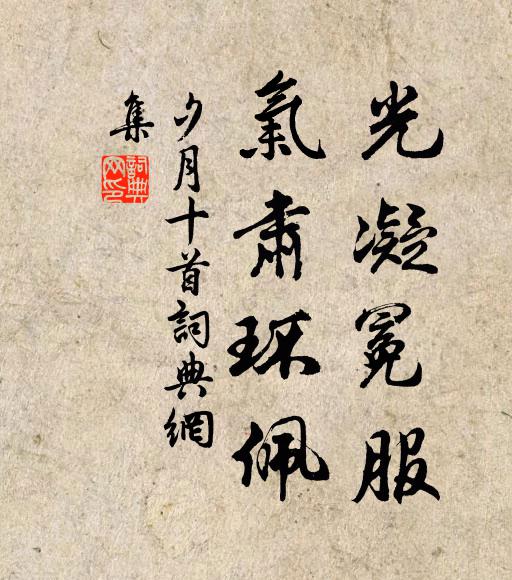 光凝冕服
氣肅环佩
夕月十首詞典網
集
詞典
网印